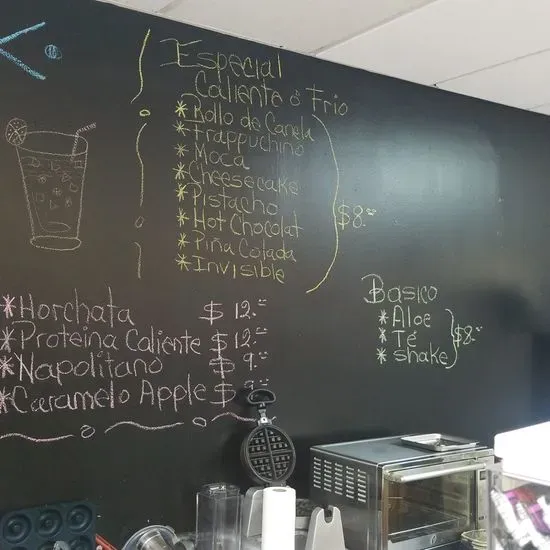 Especial
Caliente ó Frio
* Rollo de Canela
* Frappuchino
* Moca
* Cheesecake
* Pistacho
* Hot Chocolat
* Piña Colada
* Invisible
$8.=
* Horchata $12.=
* Proteina Caliente $12.=
* Napolitano $9.=
* Caramelo Apple $9.=
Basico
* Aloe
* Té
* shake
$8.=